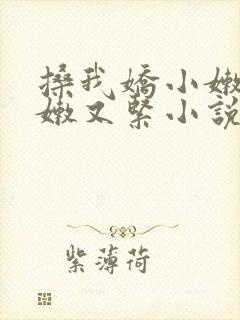 搡我嬌小嫩
嫩又緊小說
紫薄荷